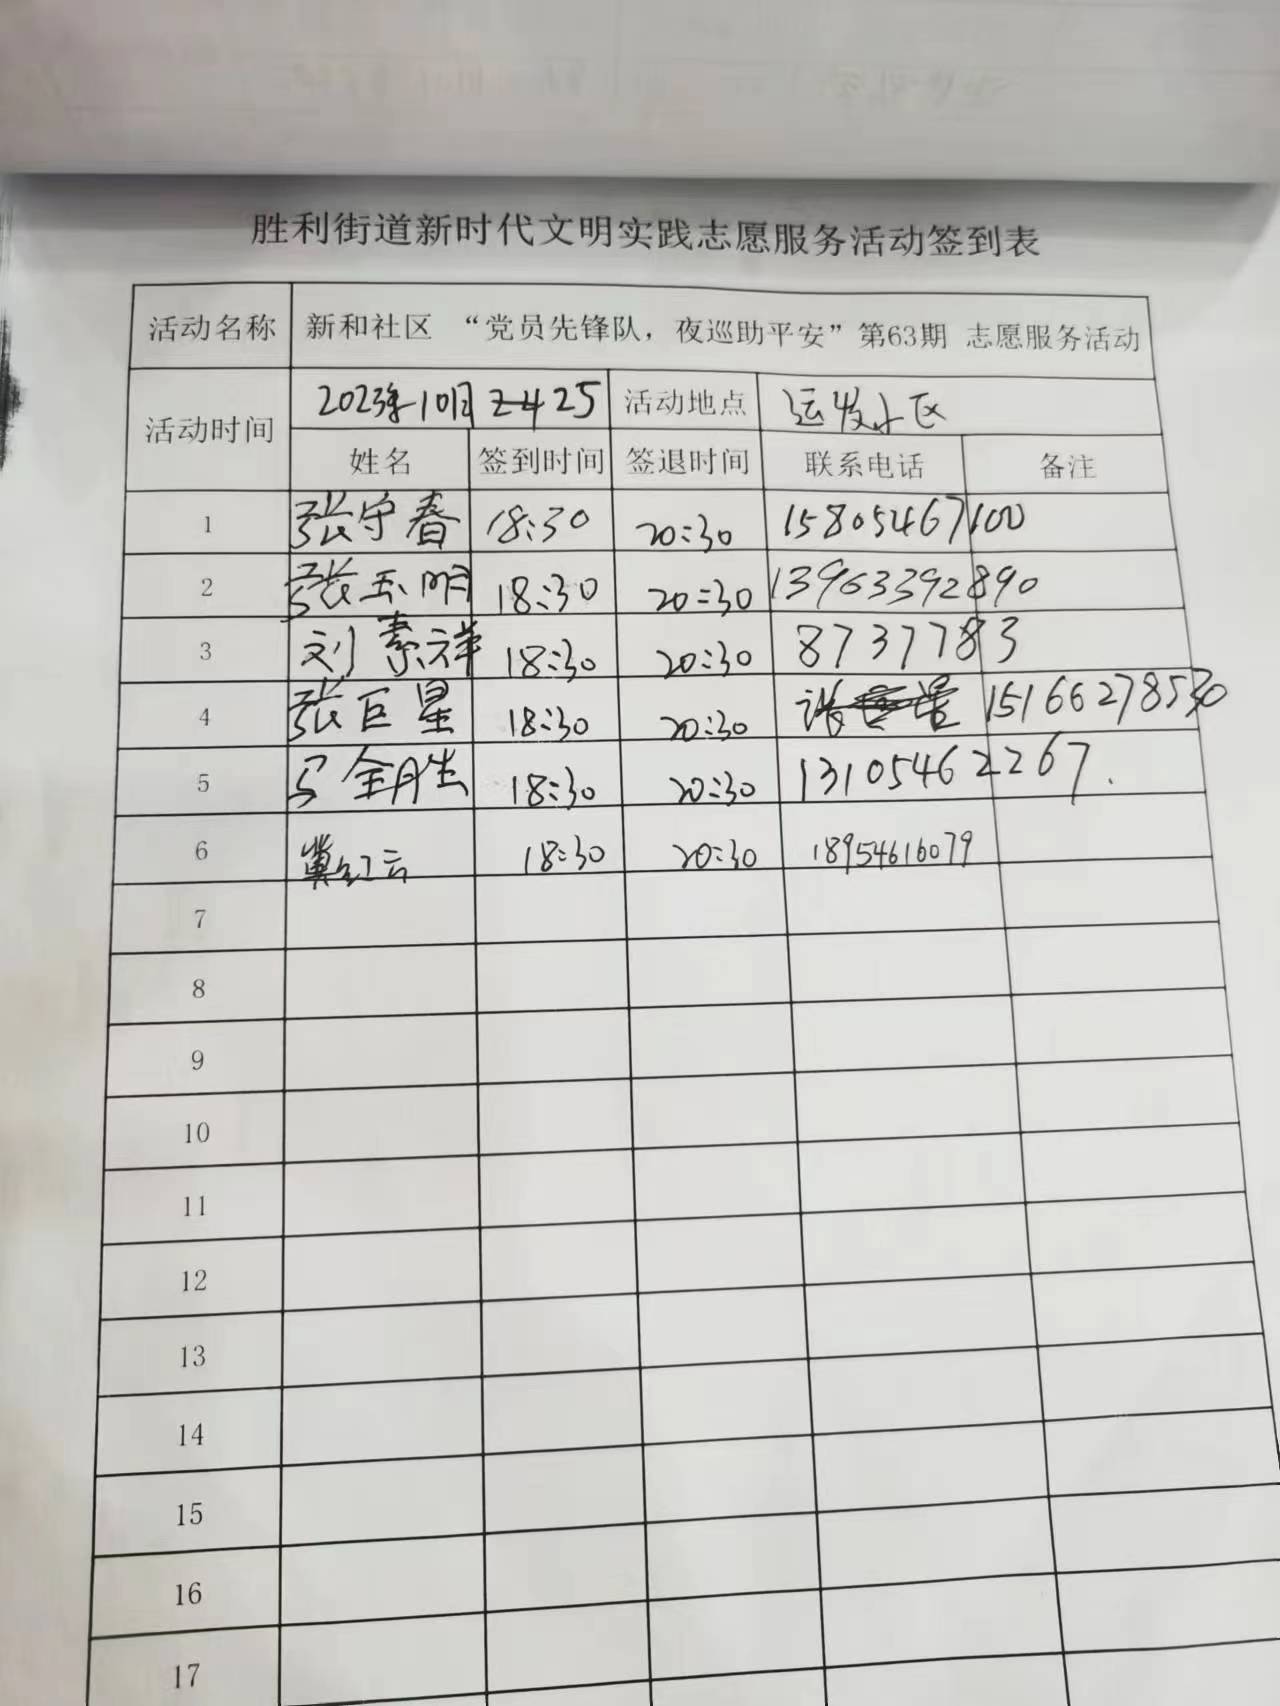 胜利街道新时代文明实践志愿服务活动签到表
活动名称 新和社区 “党员先锋队，夜巡助平安”第63期 志愿服务活动
活动时间 2023年10月 25 活动地点 运发小区
姓名 签到时间 签退时间 联系电话 备注
1 张守春 18:30 20:30 15805467100
2 张玉明 18:30 20:30 13963392890
3 刘素祥 18:30 20:30 8737783
4 张巨星 18:30 20:30 15166278530
5 马全胜 18:30 20:30 13105462267.
6 冀红云 18:30 20:30 18954616079
7
8
9
10
11
12
13
14
15
16
17